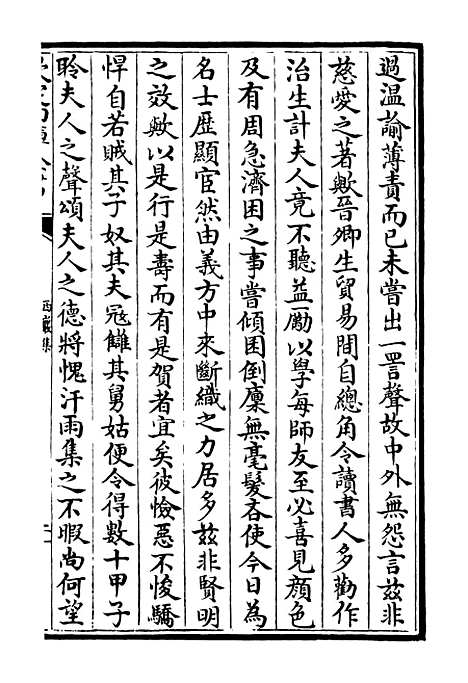 過温諭薄責而已未嘗出一詈聲故中外無怨言兹非
慈愛之著歟晉卿生貿易間自總角令讀書人多勸作
治生計夫人竟不聽益勵以學每師友至必喜見顔色
及有周急濟困之事嘗傾囷倒廩無毫髮吝使今日為
名士歴顯宦然由義方中來斷織之力居多兹非賢明
之效歟以是行是壽而有是賀者宜矣彼憸惡不悛驕
悍自若賊其子奴其夫寇讎其舅姑便令得數十甲子
聆夫人之聲頌夫人之德將愧汗雨集之不暇尚何望
西巖集